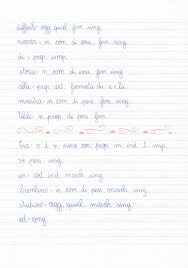 difficile = agg. qual. fem. sing.
ricerca = n. com. di cosa, fem. sing.
di = prep. simp.
storia = n. com. di cosa, fem. sing.
alla = prep. art. formata da a + la
maestra = n. com. di pers. fem. sing.
n. di pers. fem.
v. d. v. m. ind. t. imp.
3ª pers. sing.
un = art. ind. masch. sing.
bambino = n. com. di pers. masch. sing.
studioso = agg. qual. masch. sing.
ed = cong.